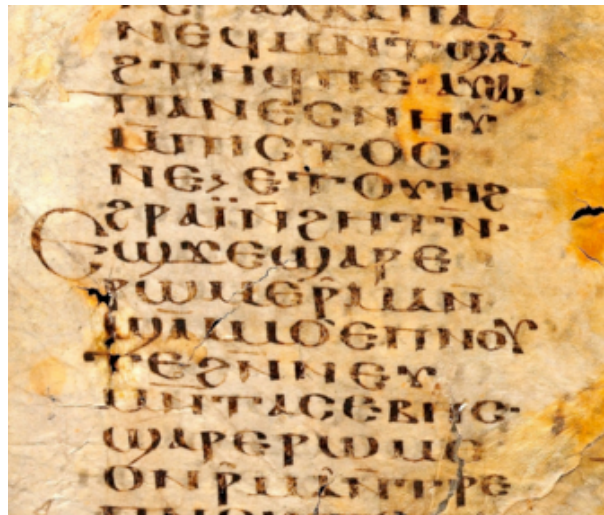 ⲛⲉϥⲙⲛⲧϣⲁⲛ̄
ϩⲧⲏϥⲡⲉ· ⲁⲩⲱ
ⲡⲁⲛⲉⲥⲛⲏⲩ
ⲙ̄ⲡⲓⲥⲧⲟⲥ
ⲛⲉ> ⲉⲧⲟⲩⲏϩ
ϩⲣⲁⲓ̈ⲛ̄ϩⲏⲧⲛ̄·
ⲉϣϫⲉϣⲁⲣⲉ
ⲣⲱⲙⲉⲣ̂ϣⲁⲛ
ϣⲙ̄ⲙⲟⲉⲡⲛⲟⲩ
ⲧⲉϩⲛ̄ⲛⲉⲩ
ⲙⲛ̄ⲧⲁⲥⲉⲃⲏⲥ·
ϣⲁⲣⲉⲣⲱⲙⲉ
ⲟⲛⲣ̂ⲙⲁⲛ̄ⲧⲣⲉ